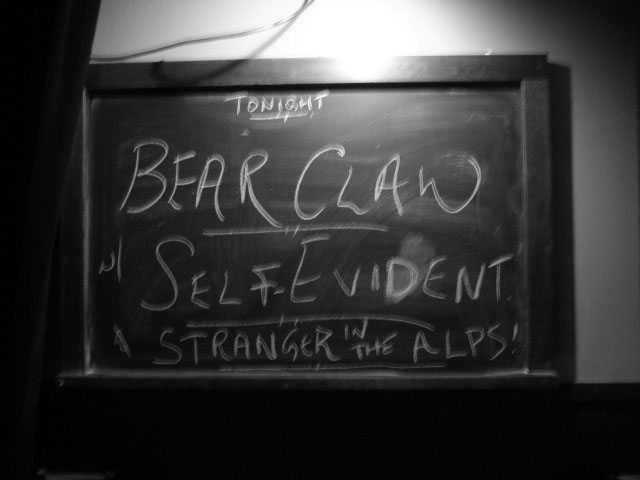 TONIGHT
BEAR CLAW
w/ SELF-EVIDENT
& STRANGER IN THE ALPS!